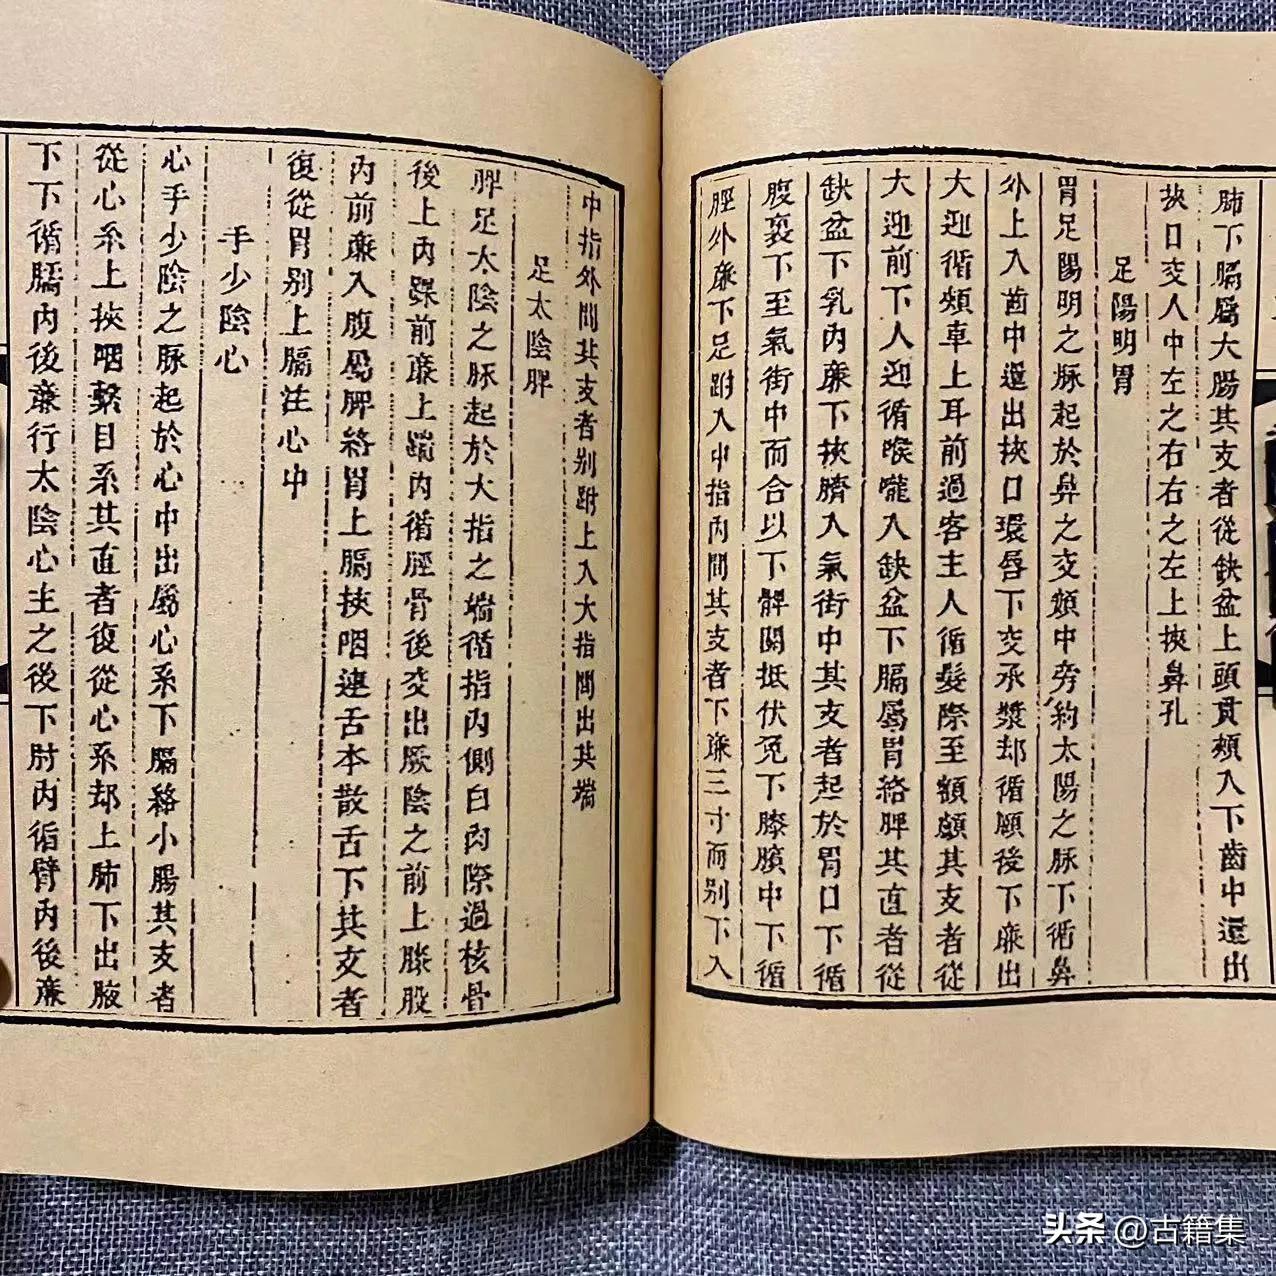 肺下膈屬大腸其支者從缺盆上頭貫頰入下齒中還出
挾口交人中左之右右之左上挾鼻孔
足陽明胃
胃足陽明之脉起於鼻之交頞中旁約太陽之脉下循鼻
外上入齒中還出挾口環唇下交承漿却循頤後下廉出
大迎循頰車上耳前過客主人循髮際至額顱其支者從
大迎前下人迎循喉嚨入缺盆下膈屬胃絡脾其直者從
缺盆下乳內廉下挾臍入氣街中其支者起於胃口下循
腹裏下至氣街中而合以下髀關抵伏兔下膝臏中下循
脛外廉下足跗入中指內間其支者下廉三寸而別下入
中指外間其支者別跗上入大指間出其端
足太陰脾
脾足太陰之脉起於大指之端循指內側白肉際過核骨
後上內踝前廉上踹內循脛骨後交出厥陰之前上膝股
內前廉入腹屬脾絡胃上膈挾咽連舌本散舌下其支者
復從胃别上膈注心中
手少陰心
心手少陰之脉起於心中出屬心系下膈絡小腸其支者
從心系上挾咽繫目系其直者復從心系却上肺下出腋
下下循臑內後廉行太陰心主之後下肘內循臂內後廉
头条 @古籍集